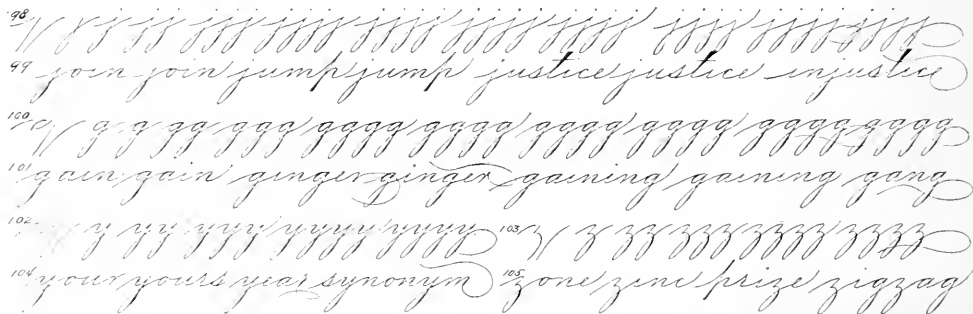 98 j jj jjj jjjj jjjj jjjj jjjj jjjj
99 join join jump jump justice justice injustice
100 g g gg ggg gggg gggg gggg gggg gggg gggg
101 gain gain ginger ginger gaining gaining gang
102 y yy yyy yyyy yyyy
103 z zz zzzz zzzz zzzz
104 your yours year synonym
105 zone zinc prize zigzag